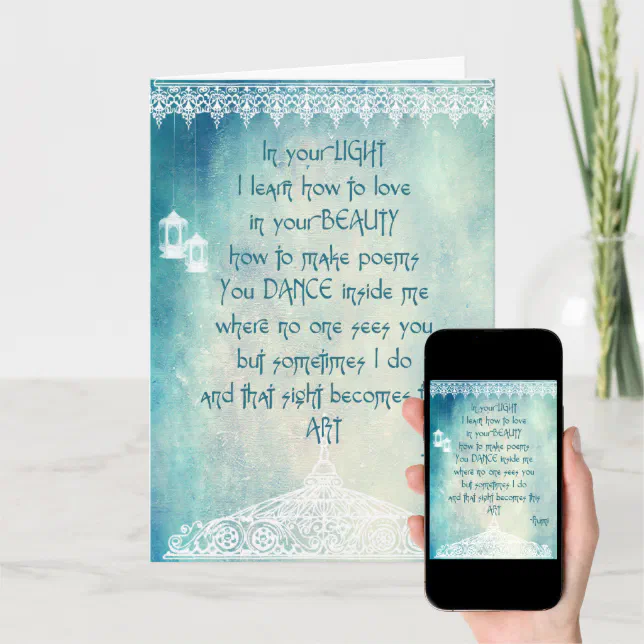 In your LIGHT
I learn how to love
in your BEAUTY
how to make poems
You DANCE inside me
where no one sees you
but sometimes I do
and that sight becomes t
ART
In your LIGHT
I learn how to love
in your BEAUTY
how to make poems
You DANCE inside me
where no one sees you
but sometimes I do
and that sight becomes this
ART
-Rumi